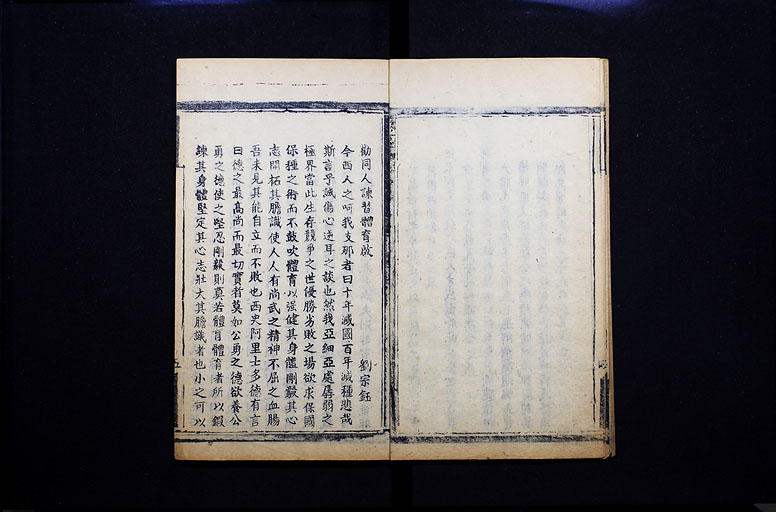 勸同人諫習體育啟
劉宗鈺
今西人之呵我支那者曰十年滅國百年滅種悲哉
斯言乎誠傷心逆耳之談也然我亞細亞處孱弱之
極界當此生存競爭之世優勝劣敗之場欲求保國
保種之術而不鼓吹體育以强健其身體剛毅其心
志開拓其膽識使人人有尚武之精神不屈之血腸
吾未見其能自立而不敗也西史阿里士多德有言
曰德之最高尚而最切實者莫如公勇之德欲養公
勇之德使之堅忍剛毅則莫若體育體育者所以鍛
鍊其身體堅定其心志壯大其膽識者也小之可以
五